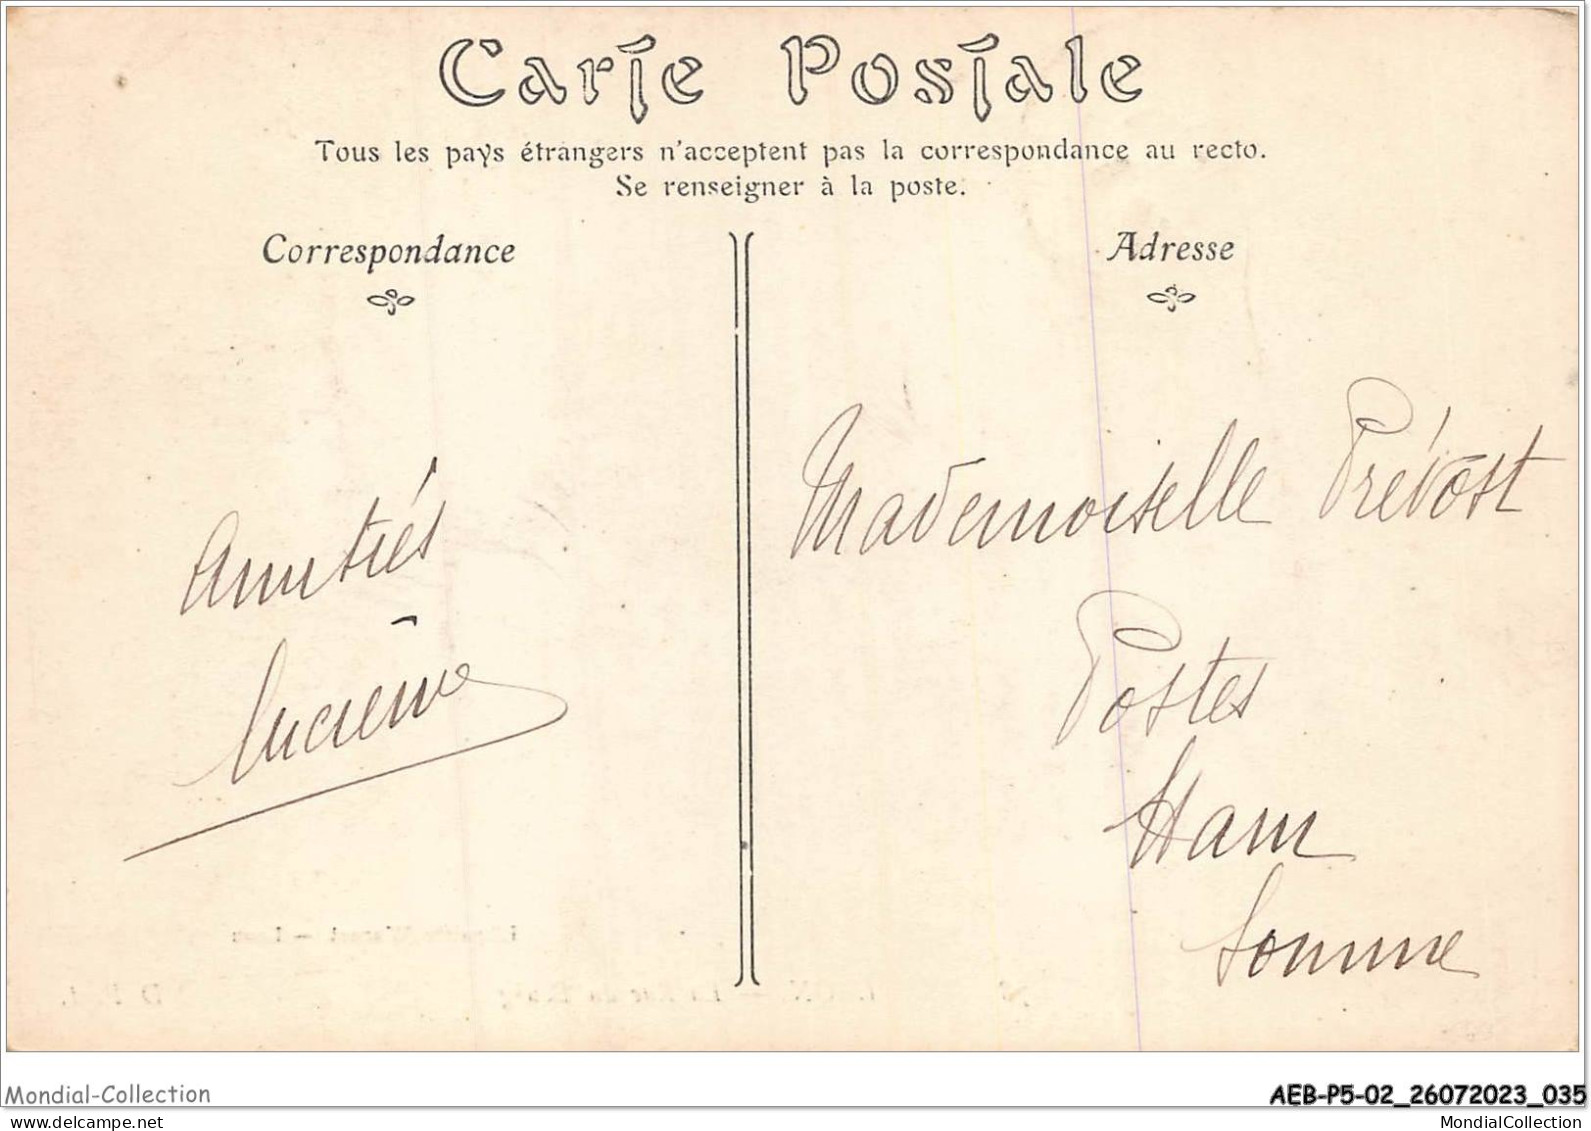 Carte Postale
Tous les pays étrangers n'acceptent pas la correspondance au recto.
Se renseigner à la poste.
Correspondance
Adresse
Amitiés
Lucienne
Mademoiselle Prévost
Postes
Ham
Somme
Mondial-Collection
AEB-P5-02_26072023_035
delcampe.net
MondialCollection